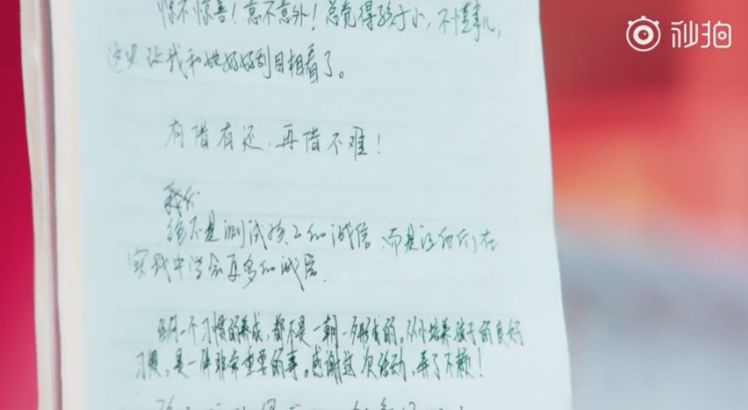 惊不惊喜！意不意外！总觉得孩子小，不懂事儿，
这次让我和她妈好好刮目相看了。
有借有还，再借不难！
我们
绝不是测试孩子的诚信，而是让他们在
实践中学会更多的诚信.
任何一个习惯的养成，都不是一朝一夕形成的。从小培养孩子的良好
习惯，是一件非常重要的事。感谢这次活动，弄了不赖！
秒拍